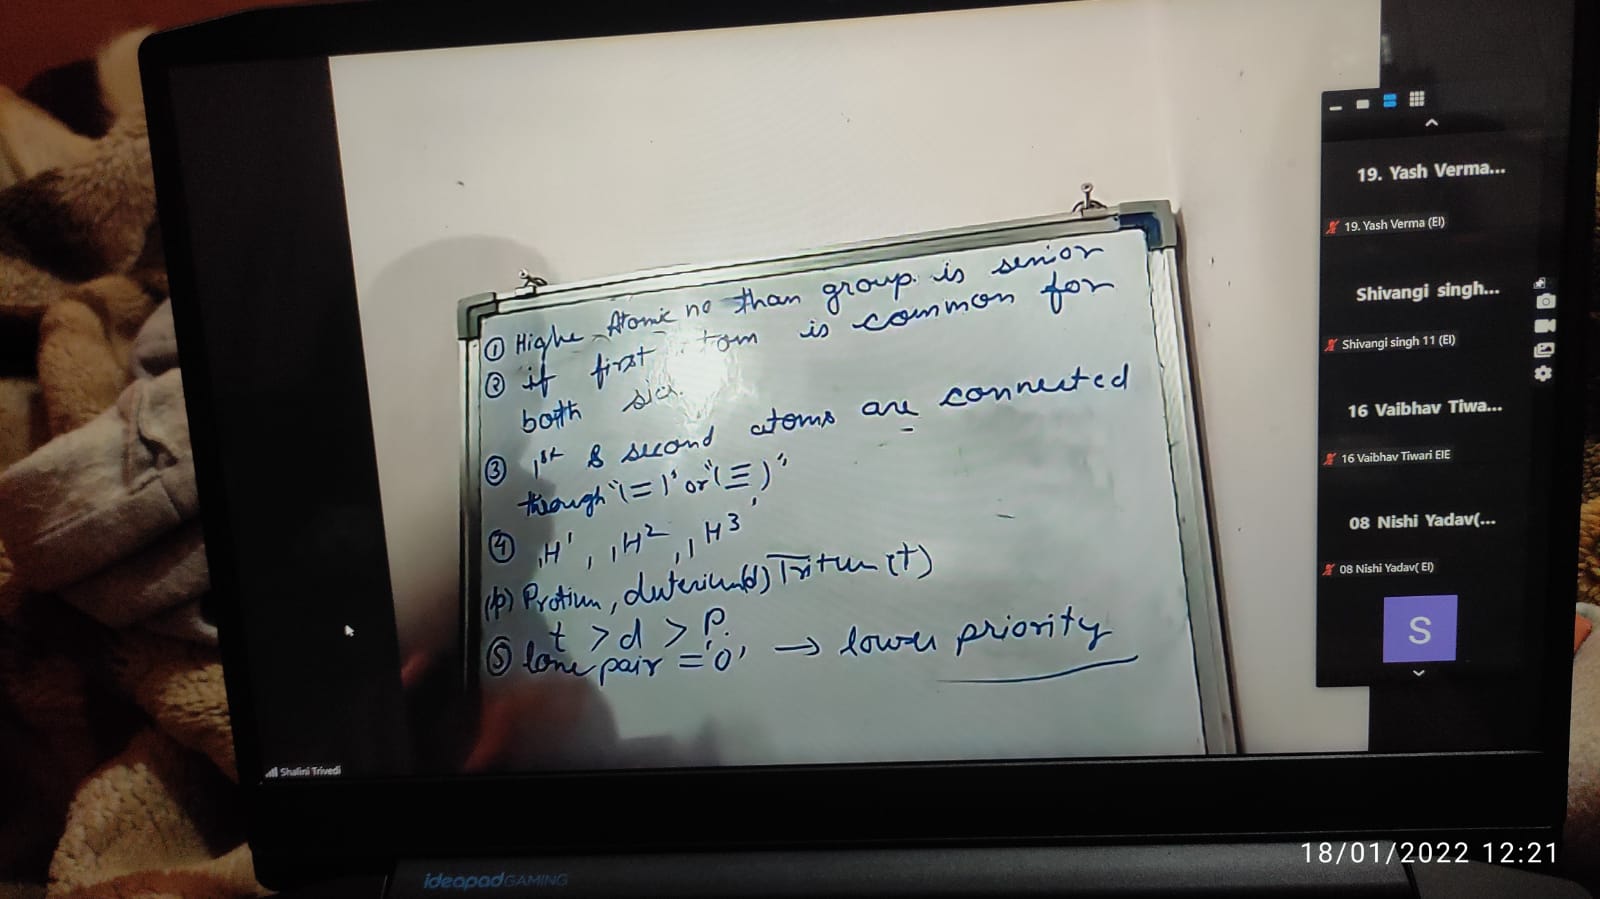 ① Highe Atomic no than group. is senior
② if first tom is common for
both
③ 1st & second atoms are connected
through "(=)" or "(≡)"
④ ₁H¹, ₁H², ₁H³
(p) Protium, deterium(d) Tritum (t)
t > d > p.
⑤ lone pair = '0' → lower priority
19. Yash Verma...
19. Yash Verma (EI)
Shivangi singh...
Shivangi singh 11 (EI)
16 Vaibhav Tiwa...
16 Vaibhav Tiwari EIE
08 Nishi Yadav(...
08 Nishi Yadav( EI)
S
Shalini Trivedi
ideapad GAMING
18/01/2022 12:21